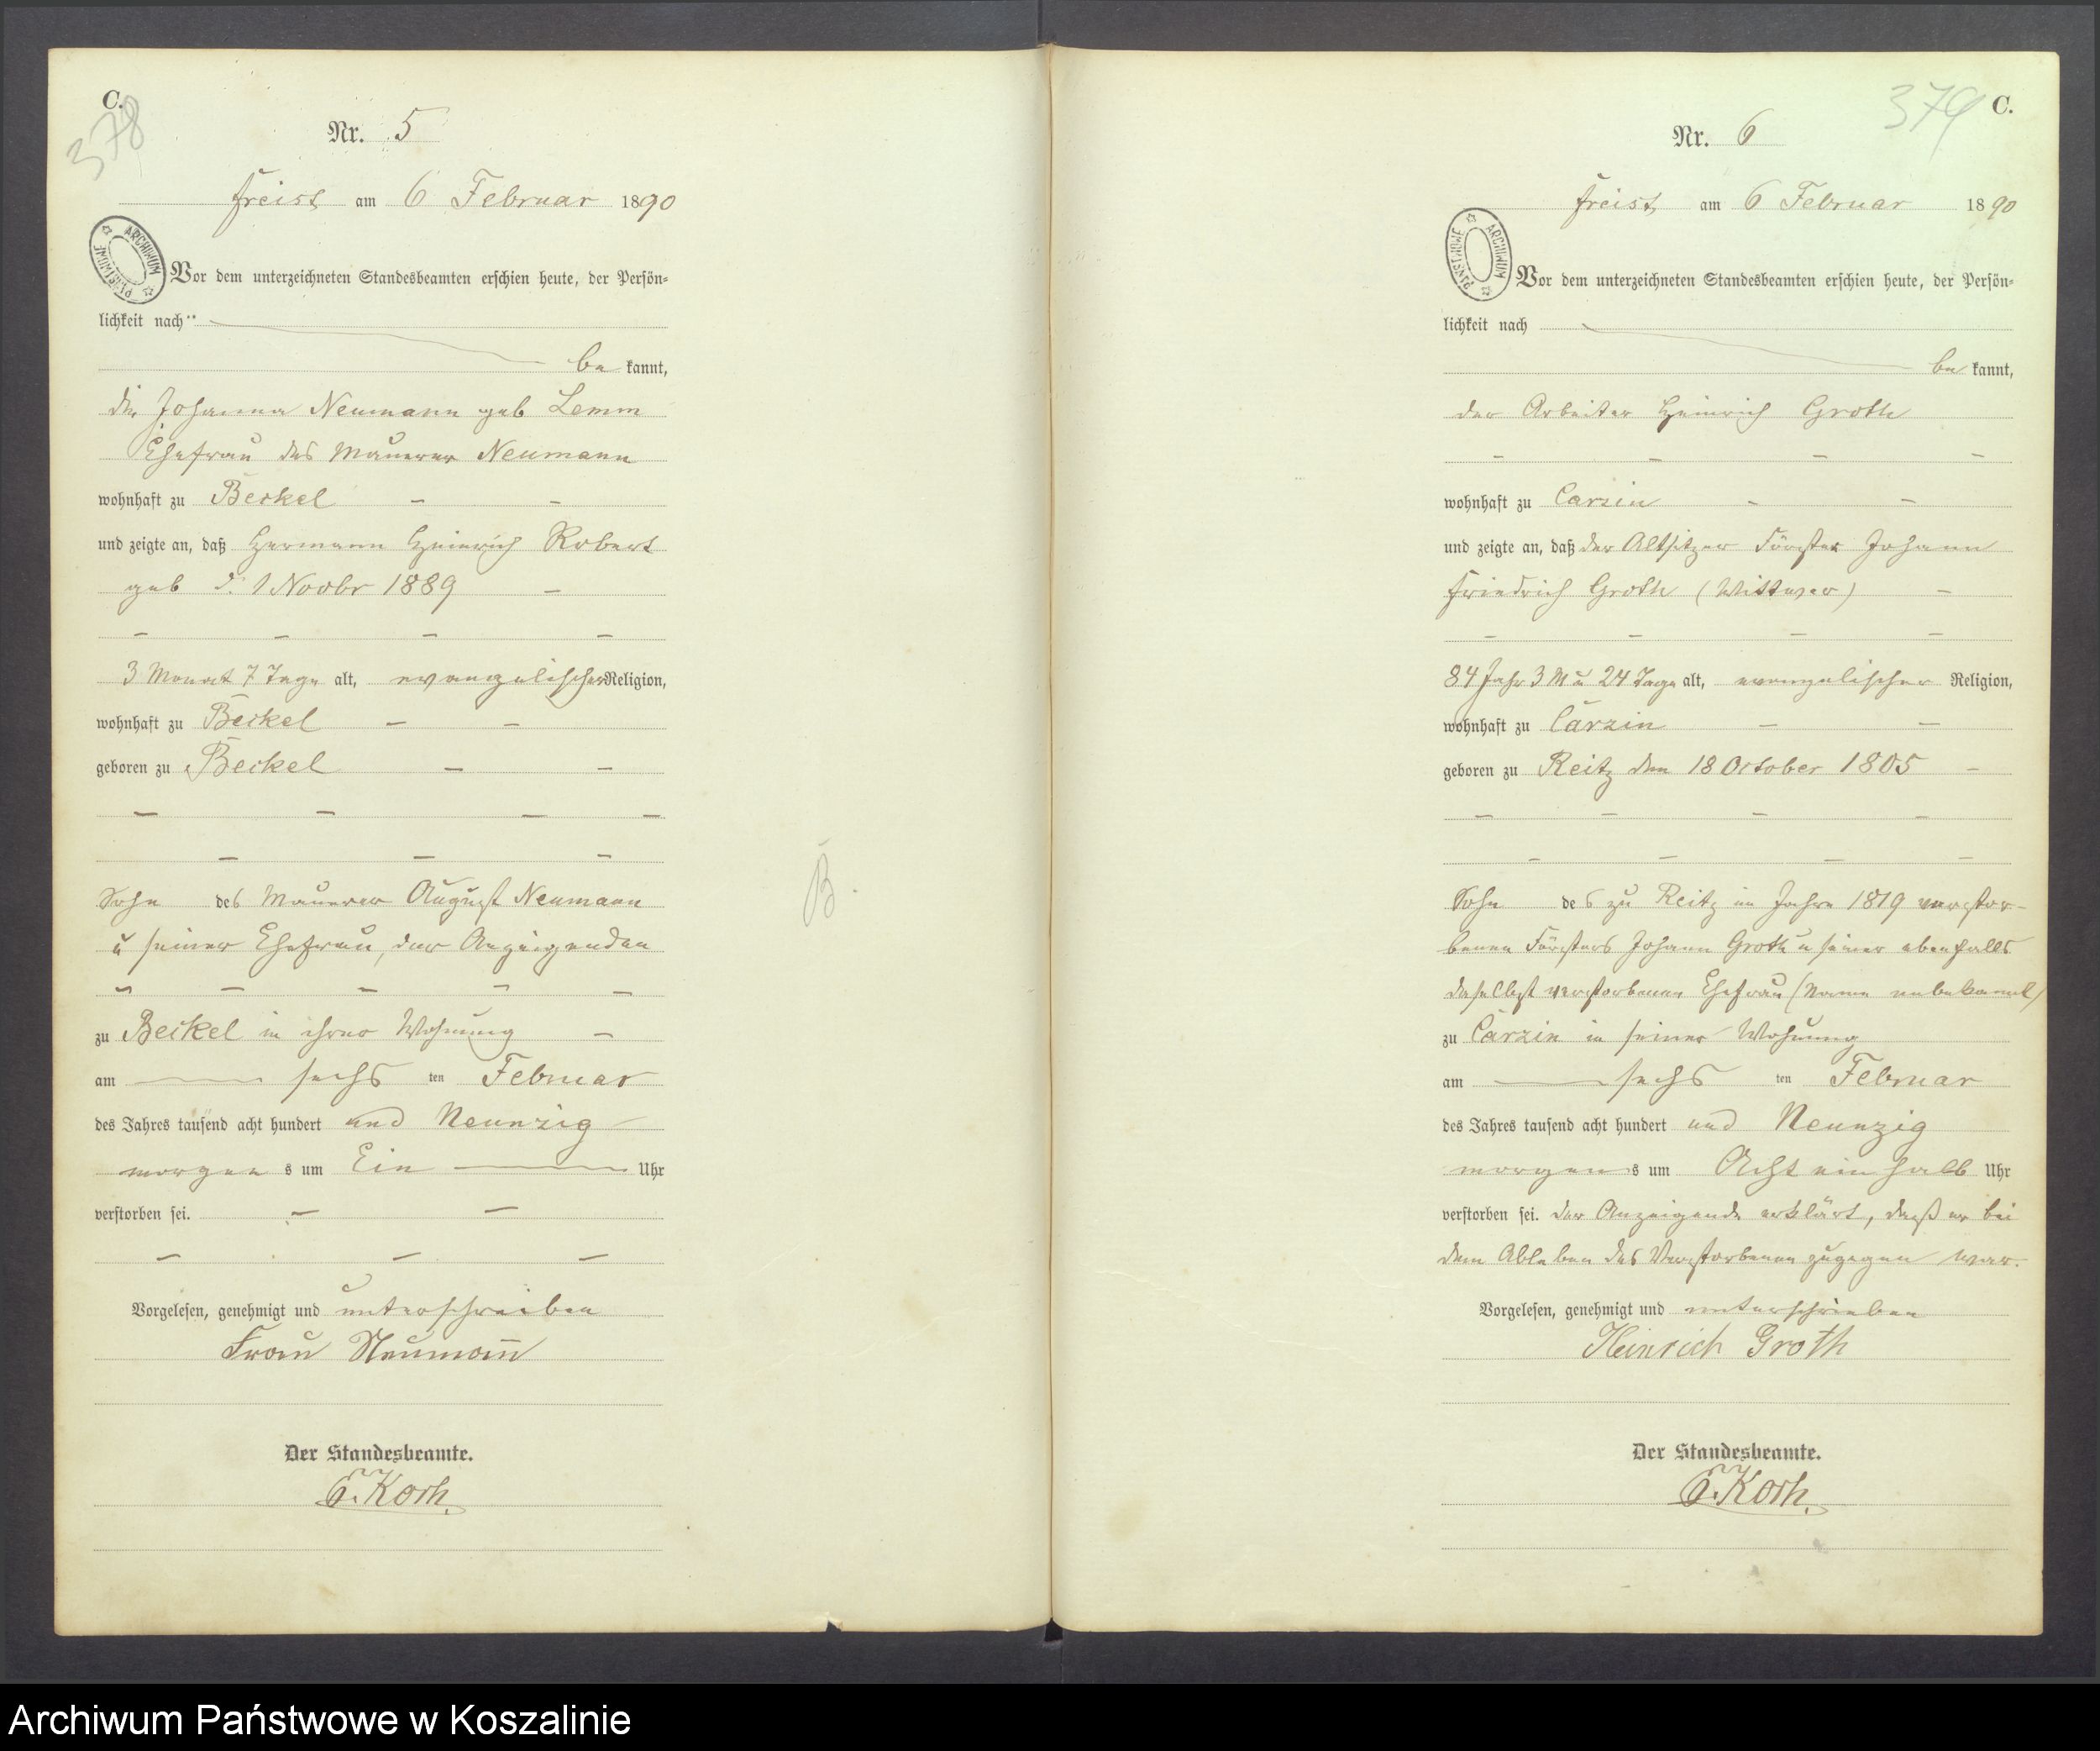 C.
378
Nr. 5
Freist am 6 Februar 1890
ARCHIWUM PAŃSTWOWE
Vor dem unterzeichneten Standesbeamten erschien heute, der Persön-
lichkeit nach
be kannt,
die Johanna Neumann geb Lemm
Ehefrau des Maurer Neumann
wohnhaft zu Beckel - -
und zeigte an, daß Hermann Heinrich Robert
geb d. 1 Novbr 1889 -
- - - -
3 Monat 7 Tage alt, evangelischer Religion,
wohnhaft zu Beckel - -
geboren zu Beckel - -
- - - -
- - -
Sohn des Maurer August Neumann
u seiner Ehefrau, der Anzeigenden
- - - - -
zu Beckel in ihrer Wohnung -
am sechs ten Februar
des Jahres tausend acht hundert und Neunzig
morgen s um Ein Uhr
verstorben sei. - -
- - -
Vorgelesen, genehmigt und unterschrieben
Frau Neumann
Der Standesbeamte.
E. Koch.
B.
379
C.
Nr. 6
Freist am 6 Februar 1890
ARCHIWUM PAŃSTWOWE
Vor dem unterzeichneten Standesbeamten erschien heute, der Persön-
lichkeit nach
be kannt,
der Arbeiter Heinrich Groth
- - - -
wohnhaft zu Carzin - -
und zeigte an, daß der Altsitzer Förster Johann
Friedrich Groth (Wittwer) -
- - - -
84 Jahr 3 M u 24 Tage alt, evangelischer Religion,
wohnhaft zu Carzin - -
geboren zu Reitz den 18 October 1805 -
- - - -
- - - -
Sohn des zu Reitz im Jahre 1819 verstor-
benen Försters Johann Groth u seiner ebenfalls
daselbst verstorbenen Ehefrau (Name unbekannt)
zu Carzin in seiner Wohnung
am sechs ten Februar
des Jahres tausend acht hundert und Neunzig
morgen s um Acht ein halb Uhr
verstorben sei. der Anzeigende erklärt, daß er bei
dem Ableben des Verstorbenen zugegen war.
Vorgelesen, genehmigt und unterschrieben
Heinrich Groth
Der Standesbeamte.
E. Koch.
Archiwum Państwowe w Koszalinie